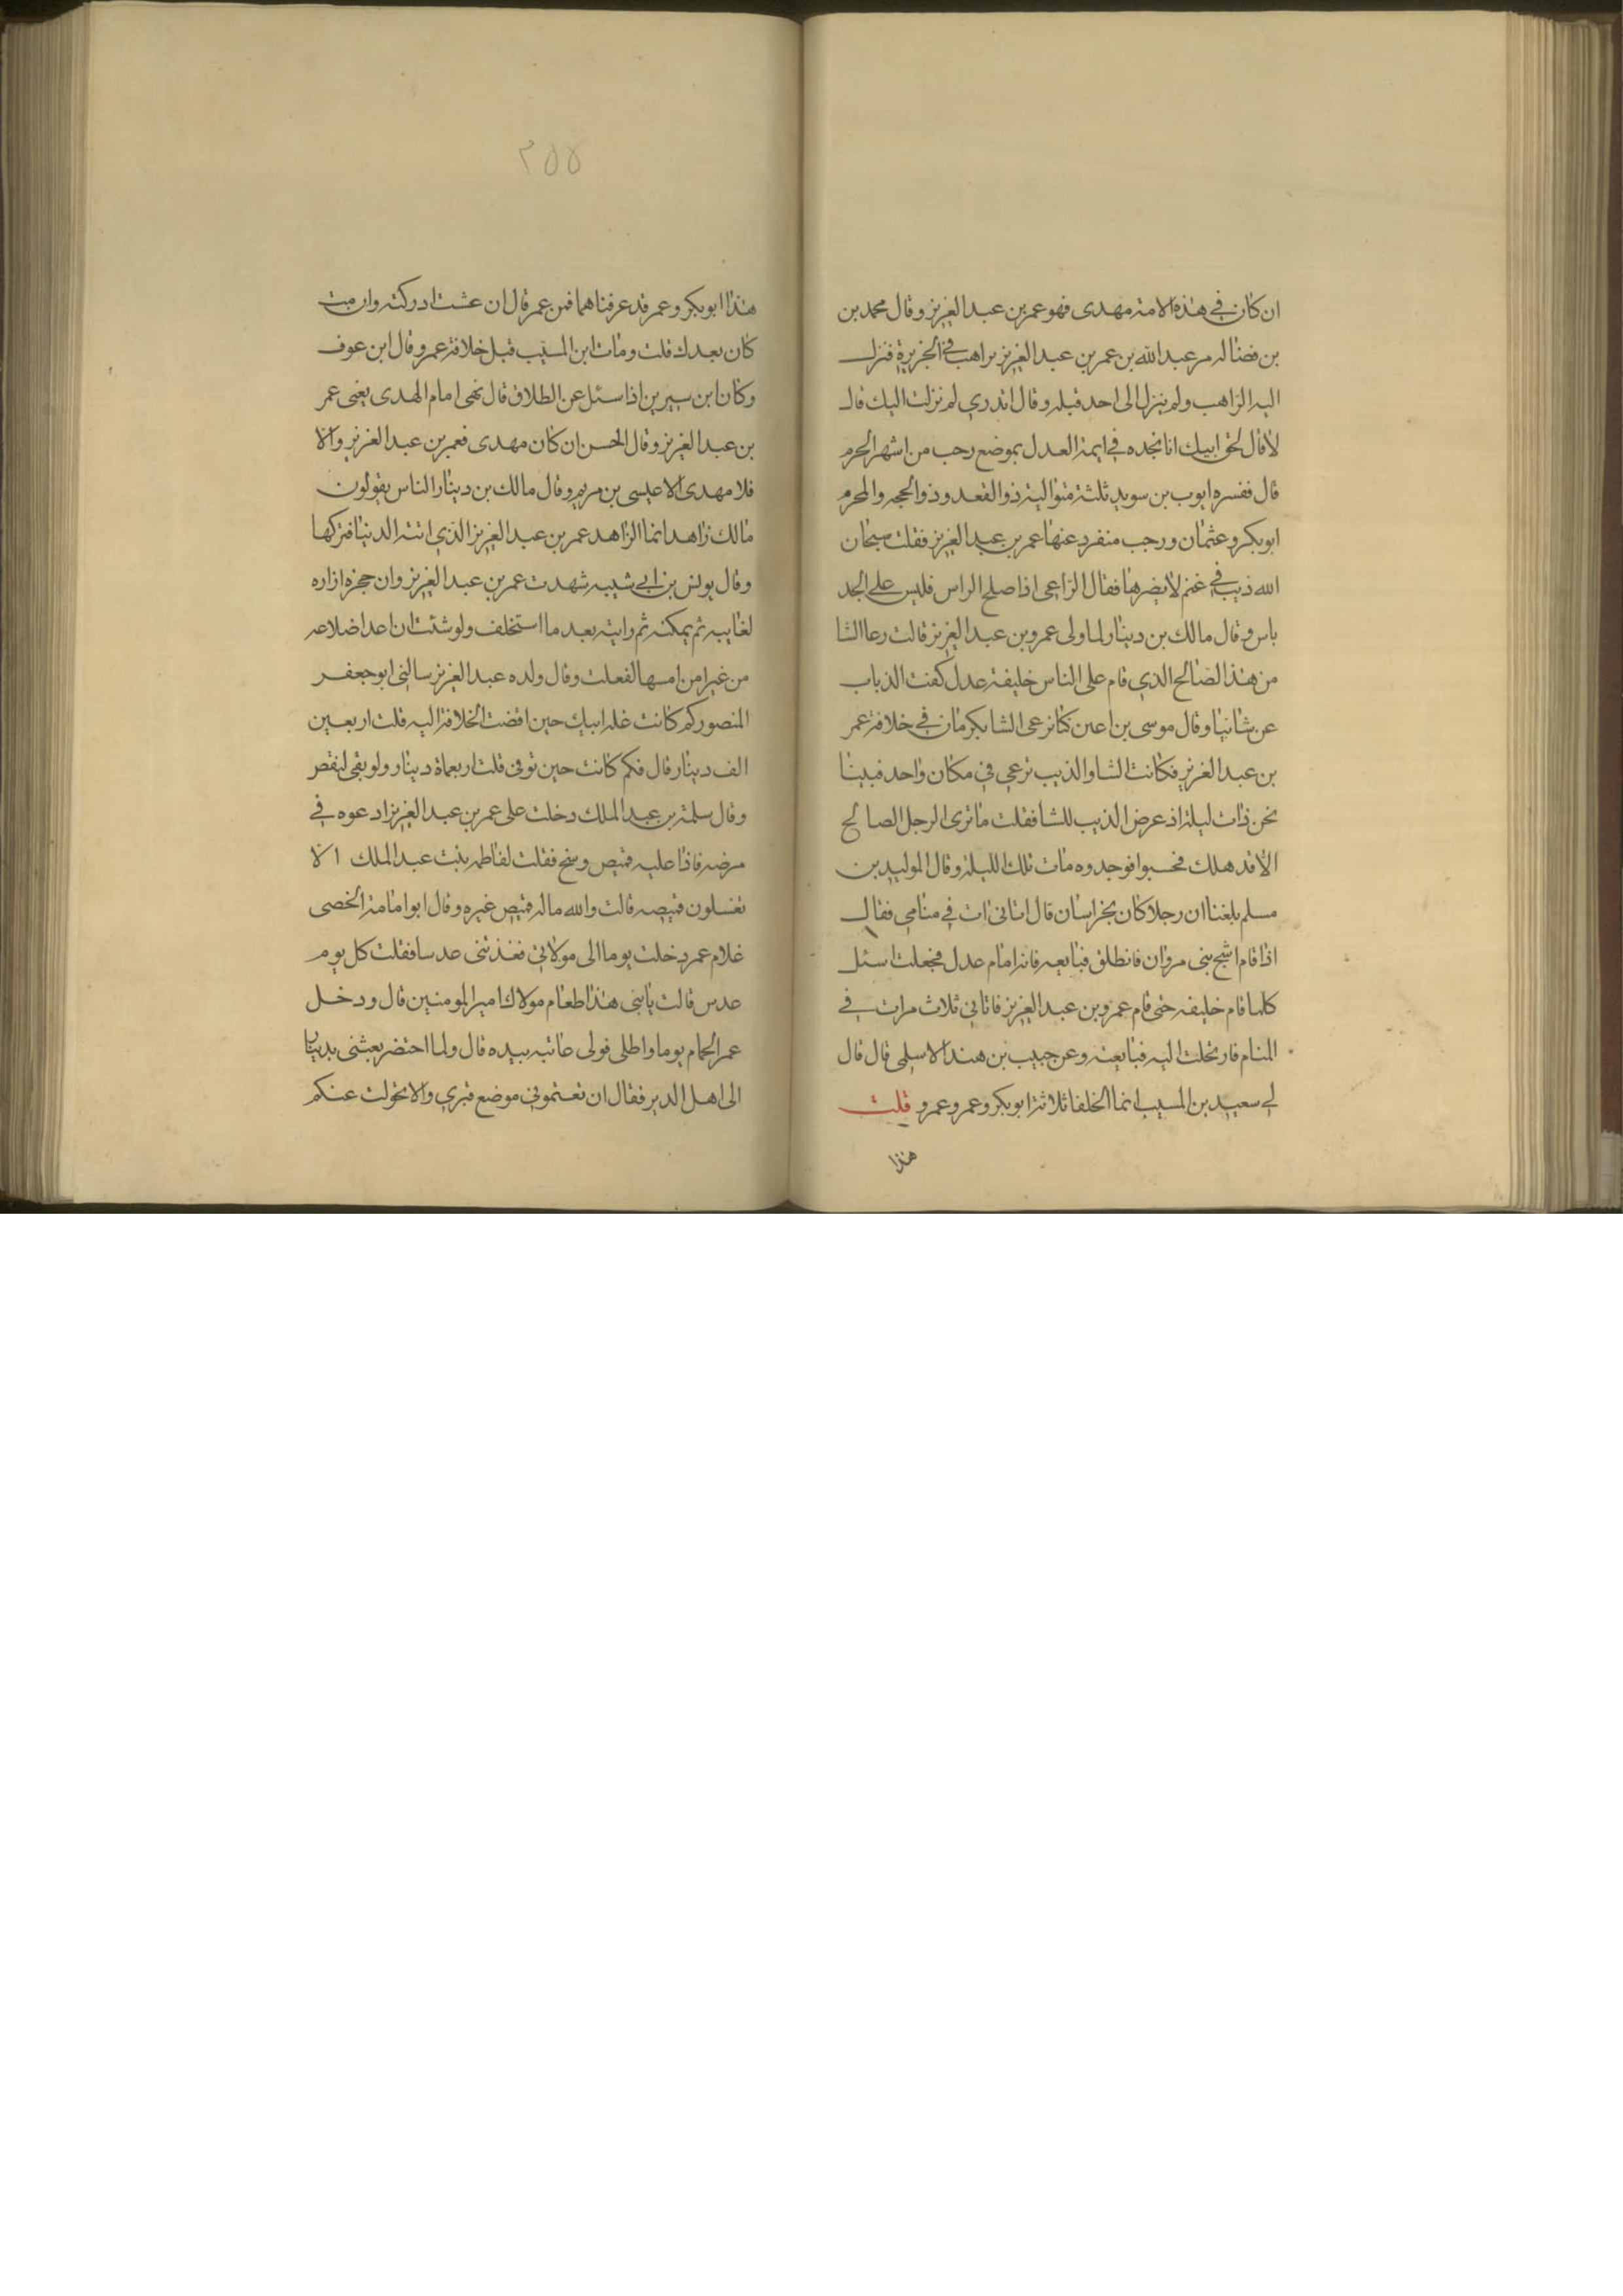 ان كان في هذه الامة مهدى فهو عمر بن عبد العزيز وقال محمد بن
بن فضاله مر عبد الله بن عمر بن عبد العزيز براهب في الجزيرة فنزل
اليه الراهب ولم ينزل الى احد قبله وقال اتدري لم نزلت اليك قال
لا قال لحق ابيك انا نجده في ايمة العدل بموضع رجب من اشهر الحرم
قال ففسره ايوب بن سويد ثلثة متوالية ذو القعد وذو الحجه والمحرم
ابو بكر وعثمان ورجب منفرد عنها عمر بن عبد العزيز فقلت سبحان
الله ذيب في غنم لا يضرها فقال الراعي اذا صلح الراس فليس على الجد
باس وقال مالك بن دينار لما ولى عمرو بن عبد العزيز قالت رعا الشا
من هذا الصالح الذي قام على الناس خليفة عدل كفت الذباب
عن شاتنا وقال موسى بن اعين كنا نرعى الشا بكرمان في خلافة عمر
بن عبد العزيز فكانت الشا والذيب ترعى في مكان واحد فبينا
نحن ذات ليلة اذ عرض الذيب للشا فقلت ما ترى الرجل الصالح
الا قد هلك فحسبوا فوجدوه مات تلك الليلة وقال الوليد بن
مسلم بلغنا ان رجلا كان بخراسان قال اتانى ات في منامي فقال
اذا قام اشج بنى مروان فانطلق فبايعه فانه امام عدل فجعلت اسئل
كلما قام خليفه حتى قام عمرو بن عبد العزيز فاتاني ثلاث مرات في
المنام فارتحلت اليه فبايعته وعن حبيب بن هند الاسلمى قال قال
لي سعيد بن المسيب انما الخلفا ثلاثة ابو بكر وعمر وعمرو قلت
هذا
٢٥٥
هذا ابو بكر وعمر قد عرفناهما فمن عمر قال ان عشت ادركته وان مت
كان بعدك قلت ومات ابن المسيب قبل خلافة عمر وقال ابن عوف
وكان ابن سيرين اذا سئل عن الطلاق قال نهى امام الهدى يعنى عمر
بن عبد العزيز وقال الحسن ان كان مهدى فعمر بن عبد العزيز والا
فلا مهدى الا عيسى بن مريم وقال مالك بن دينار الناس يقولون
مالك زاهد انما الزاهد عمر بن عبد العزيز الذي اتته الدنيا فتركها
وقال يونس بن ابي شيبه شهدت عمر بن عبد العزيز وان حجزة ازاره
لغايبه ثم رايته بعد ما استخلف ولو شئت ان اعد اضلاعه
من غير امسها لفعلت وقال ولده عبد العزيز سالنى ابو جعفر
المنصور كم كانت غلة ابيك حين افضت الخلافة اليه قلت اربعين
الف دينار قال فكم كانت حين توفي قلت اربعماة دينار ولو بقي لنقص
وقال سلمة بن عبد الملك دخلت على عمر بن عبد العزيز ادعوه في
مرضه فاذا عليه قميص وسخ فقلت لفاطمه بنت عبد الملك الا
تغسلون قميصه قالت والله ماله قميص غيره وقال ابو امامة الخصى
غلام عمر دخلت يوما الى مولاتي فغذتنى عدسا فقلت كل يوم
عدس قالت يا بنى هذا طعام مولاك امير المومنين قال ودخل
عمر الحمام يوما واطلى فولى عانته بيده قال ولما احتضر بعثنى بدينار
الى اهل الدير فقال ان تعتموني موضع قبري والا تحولت عنكم